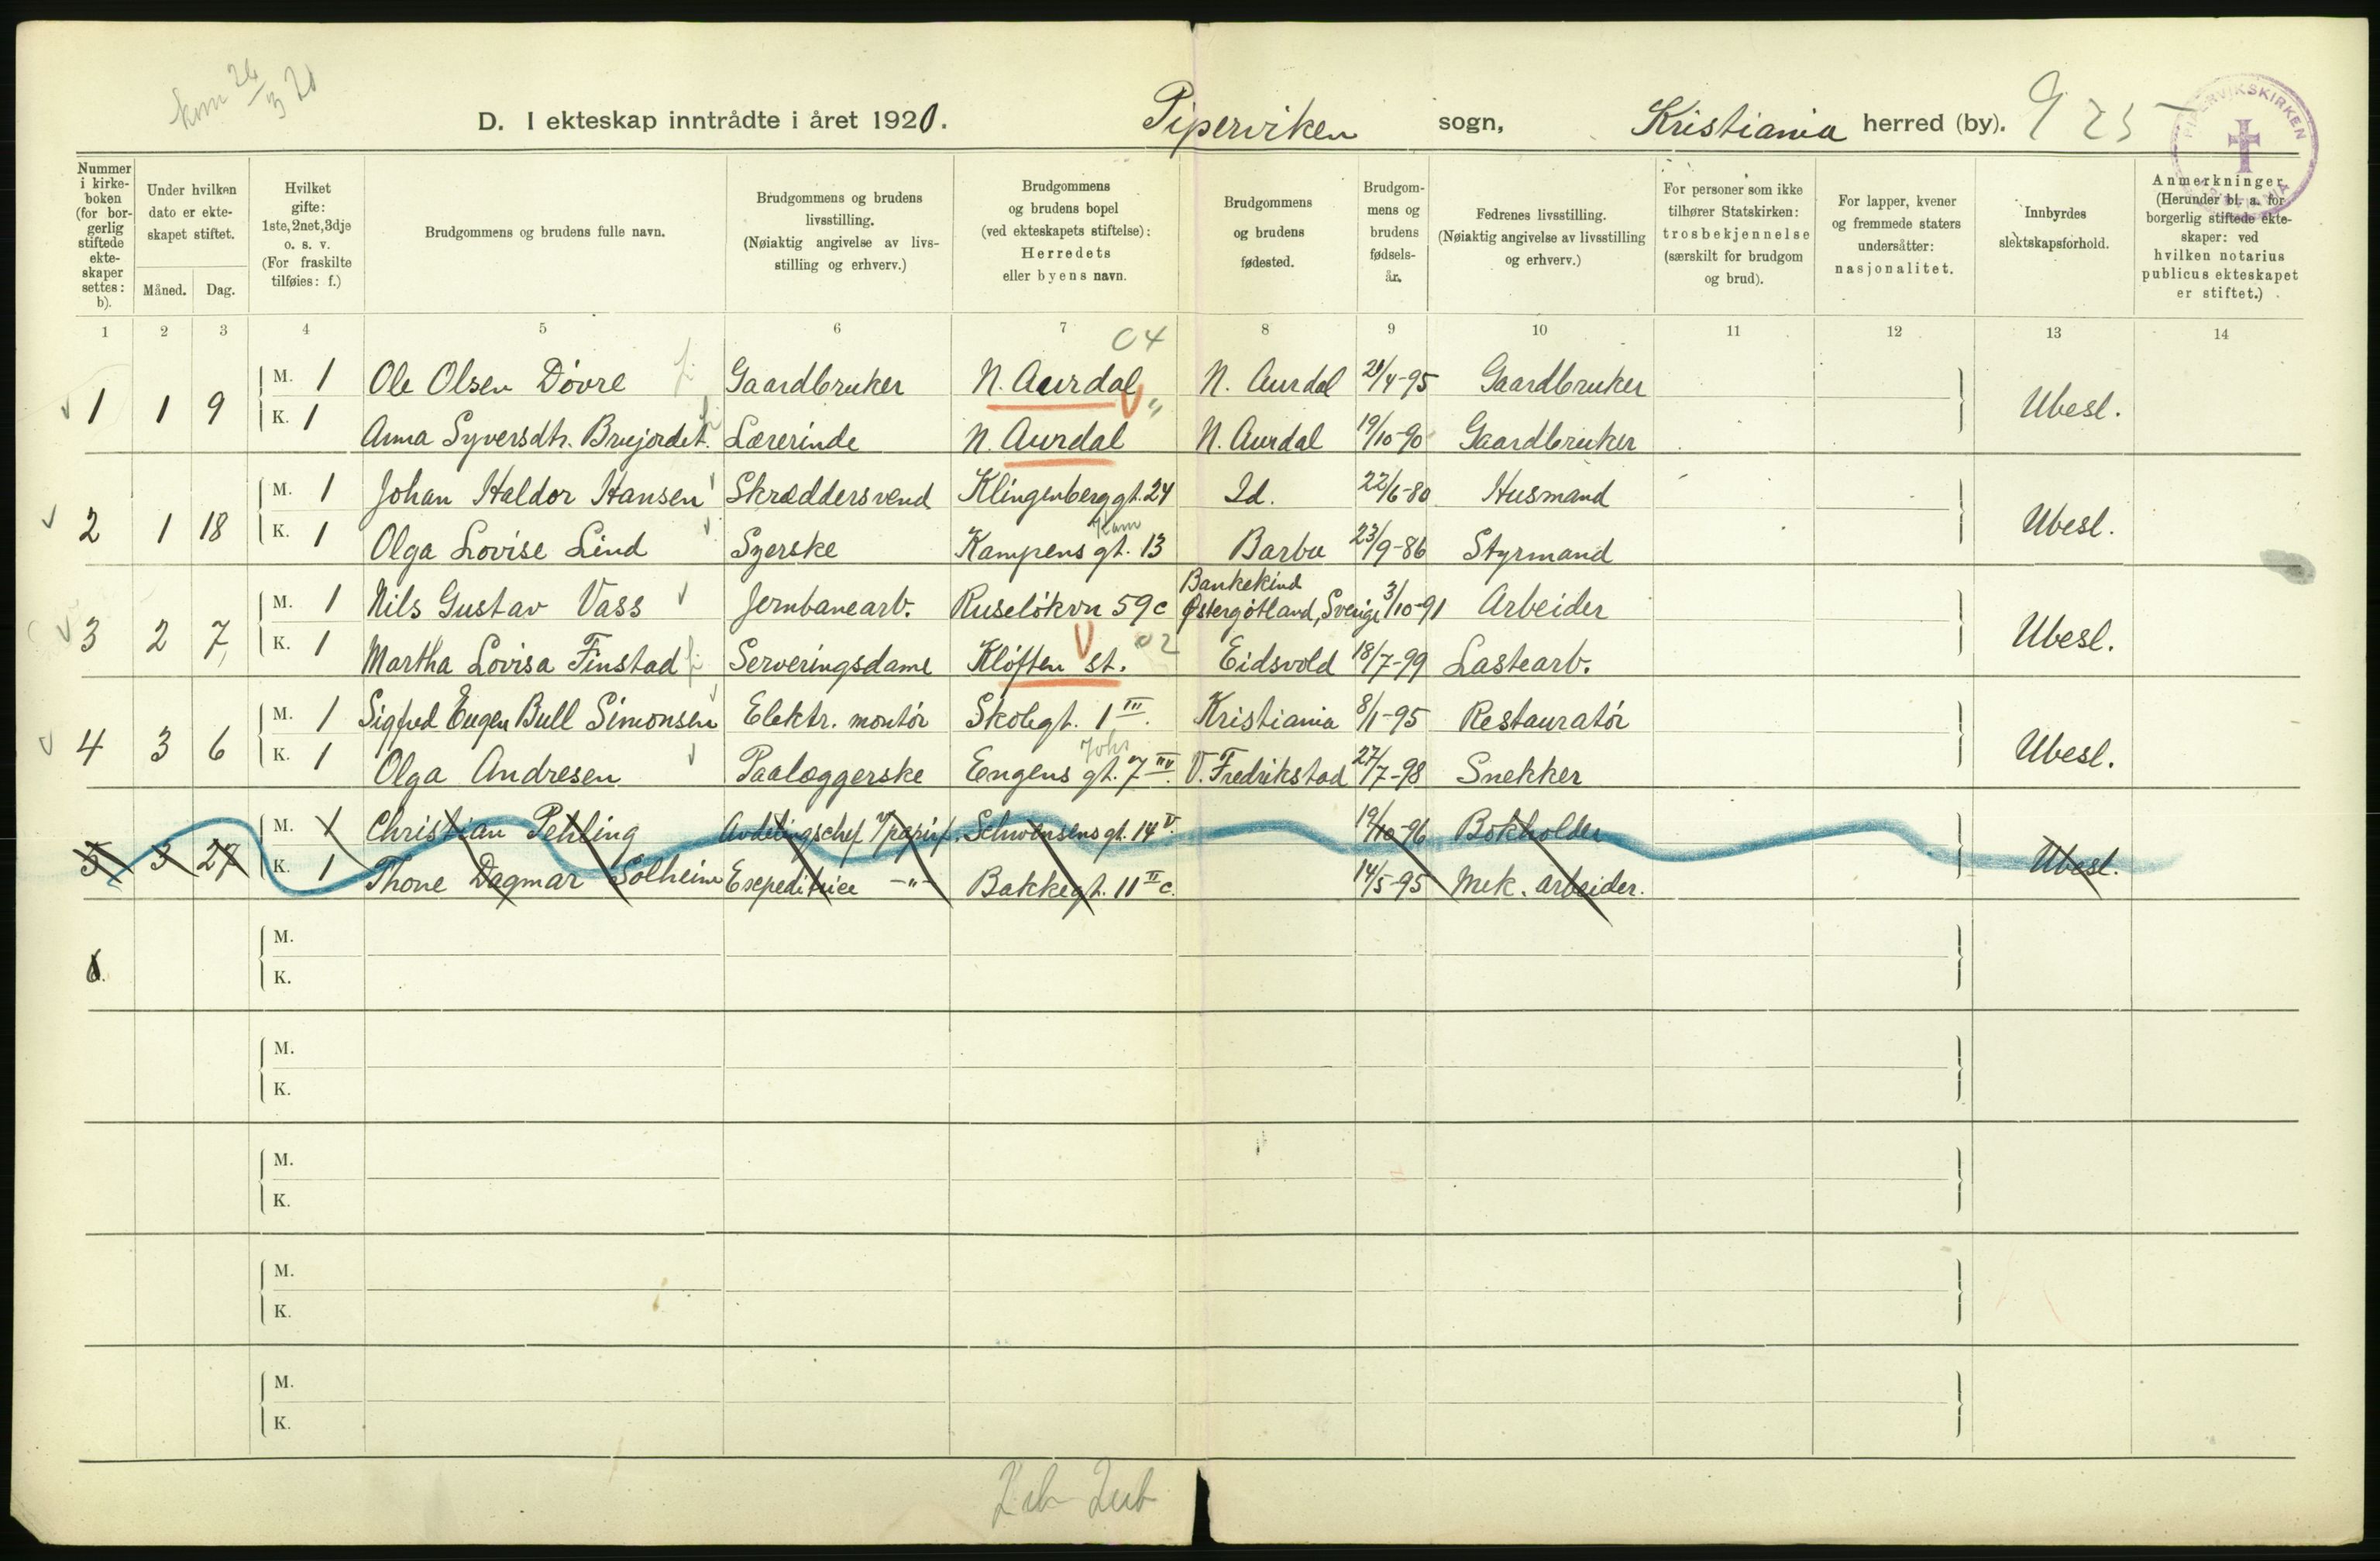 kom 26/3 20
D. I ekteskap inntrådte i året 1920. Piperviken sogn, Kristiania herred (by). 925
PIPERVIKSKIRKEN
Nummer i kirke-boken (for bor-gerlig stiftede ekte-skaper settes: b).
Under hvilken dato er ekte-skapet stiftet.
Måned. Dag.
Hvilket gifte: 1ste, 2net, 3dje o. s. v. (For fraskilte tilføies: f.)
Brudgommens og brudens fulle navn.
Brudgommens og brudens livsstilling. (Nøiaktig angivelse av livs-stilling og erhverv.)
Brudgommens og brudens bopel (ved ekteskapets stiftelse): Herredets eller byens navn.
Brudgommens og brudens fødested.
Brudgom-mens og brudens fødsels-år.
Fedrenes livsstilling. (Nøiaktig angivelse av livsstilling og erhverv.)
For personer som ikke tilhører Statskirken: trosbekjennelse (særskilt for brudgom og brud).
For lapper, kvener og fremmede staters undersåtter: nasjonalitet.
Innbyrdes slektskapsforhold.
Anmerkninger. (Herunder bl. a. for borgerlig stiftede ekte-skaper: ved hvilken notarius publicus ekteskapet er stiftet.)
1 2 3 4 5 6 7 8 9 10 11 12 13 14
04
M. 1 Ole Olsen Døvre Gaardbruker N. Aurdal N. Aurdal 21/4-95 Gaardbruker
1 1 9 Ubesl.
K. 1 Anna Syversdtr. Brujordet. Lærerinde N. Aurdal N. Aurdal 19/10-90 Gaardbruker
M. 1 Johan Haldor Hansen Skræddersvend Klingenberggt. 24 Id. 22/6-80 Husmand
2 1 18 Ubesl.
Kam
K. 1 Olga Lovise Lind Syerske Kampens gt. 13 Barbu 23/9-86 Styrmand
Bankekind
M. 1 Nils Gustav Vass Jernbanearb. Ruseløkvn 59c Østergøtland, Sverige 3/10-91 Arbeider
3 2 7 Ubesl.
02
K. 1 Martha Lovisa Finstad Serveringsdame Kløften st. Eidsvold 18/7-99 Lastearb.
M. 1 Sigfred Eugen Bull Simonsen Elektr. montør Skolegt. 1 III. Kristiania 8/1-95 Restauratør
4 3 6 Ubesl.
Johs
K. 1 Olga Andresen Paalæggerske Engens gt. 7 V. Fredrikstad 27/7-98 Snekker
M. 1 Christian Pehling Avdelingschef Schwensens gt. 14 V. 19/10-96 Bokholder
5 3 27 Ubesl.
K. 1 Thone Dagmar Solheim Expeditrice -"- Bakkegt. 11 II c. 14/5-95 Mek. arbeider.
M.
6.
K.
M.
K.
M.
K.
M.
K.
M.
K.